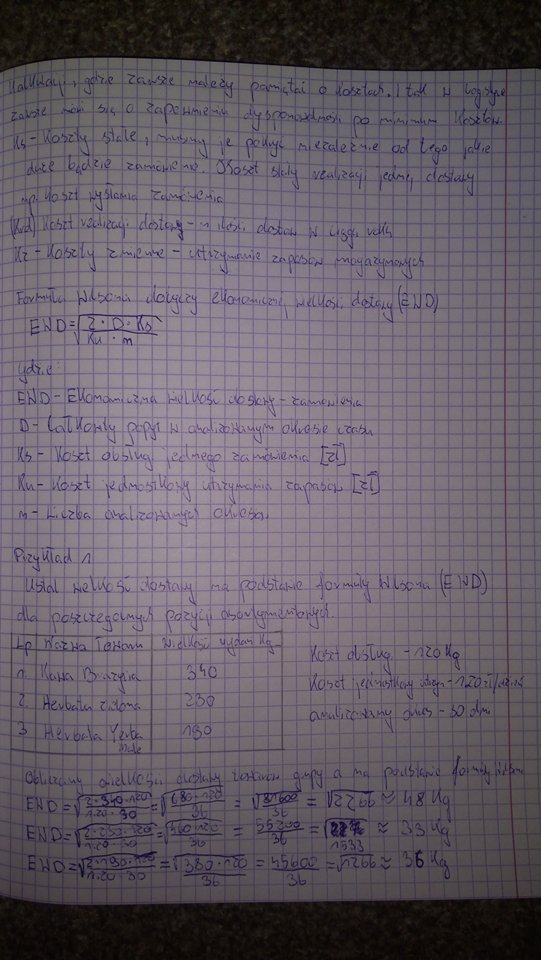 gdzie zawsze należy pamiętać o kosztach. I tak w logistyce
zawsze mówi się o zapewnieniu dysponowalności po minimum kosztów.
Ks - Koszty stałe, musimy je pokryć niezależnie od tego jakie
duże będzie zamówienie. Koszt stały realizacji jednej dostawy
np. koszt wysłania zamówienia
(Krd) Koszt realizacji dostawy - n ilości dostaw w ciągu roku
Kz - Koszty zmienne - utrzymanie zapasów magazynowych
Formuła Wilsona dotyczy ekonomicznej wielkości dostawy (END)
END = √(2 · D · Ks / Ku · n)
gdzie:
END - Ekonomiczna wielkość dostawy - zamówienia
D - Całkowity popyt w analizowanym okresie czasu
Ks - Koszt obsługi jednego zamówienia [zł]
Ku - Koszt jednostkowy utrzymania zapasów [zł]
n - Liczba analizowanych okresów
Przykład 1
Ustal wielkość dostawy na podstawie formuły Wilsona (END)
dla poszczególnych pozycji asortymentowych.
Lp Nazwa Towaru Wielkość wydań Kg
1. Kawa Brazylia 340
2. Herbata zielona 230
3 Herbata Yerba Mate 190
Koszt obsługi - 120 Kg
Koszt jednostkowy - 1.20 zł/
analizowany okres - 30 dni
Obliczamy wielkości dostawy towarów grupy a na podstawie formuły
END = √(2·340·120 / 1.20·30) = √(680·120 / 36) = √(81600 / 36) = √2266 ≈ 48 Kg
END = √(2·230·120 / 1.20·30) = √(460·120 / 36) = 55200 / 36 = √1533 ≈ 39 Kg
END = √(2·190·120 / 1.20·30) = √(380·120 / 36) = 45600 / 36 = √1266 ≈ 36 Kg